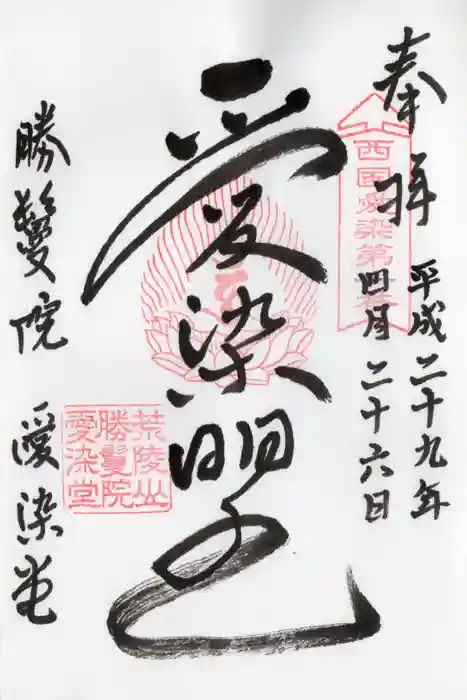 奉拝
平成二十九年
四月二十六日
西国愛染第十番
愛染明王
勝鬘院 愛染堂
荒陵山
勝鬘院
愛染堂